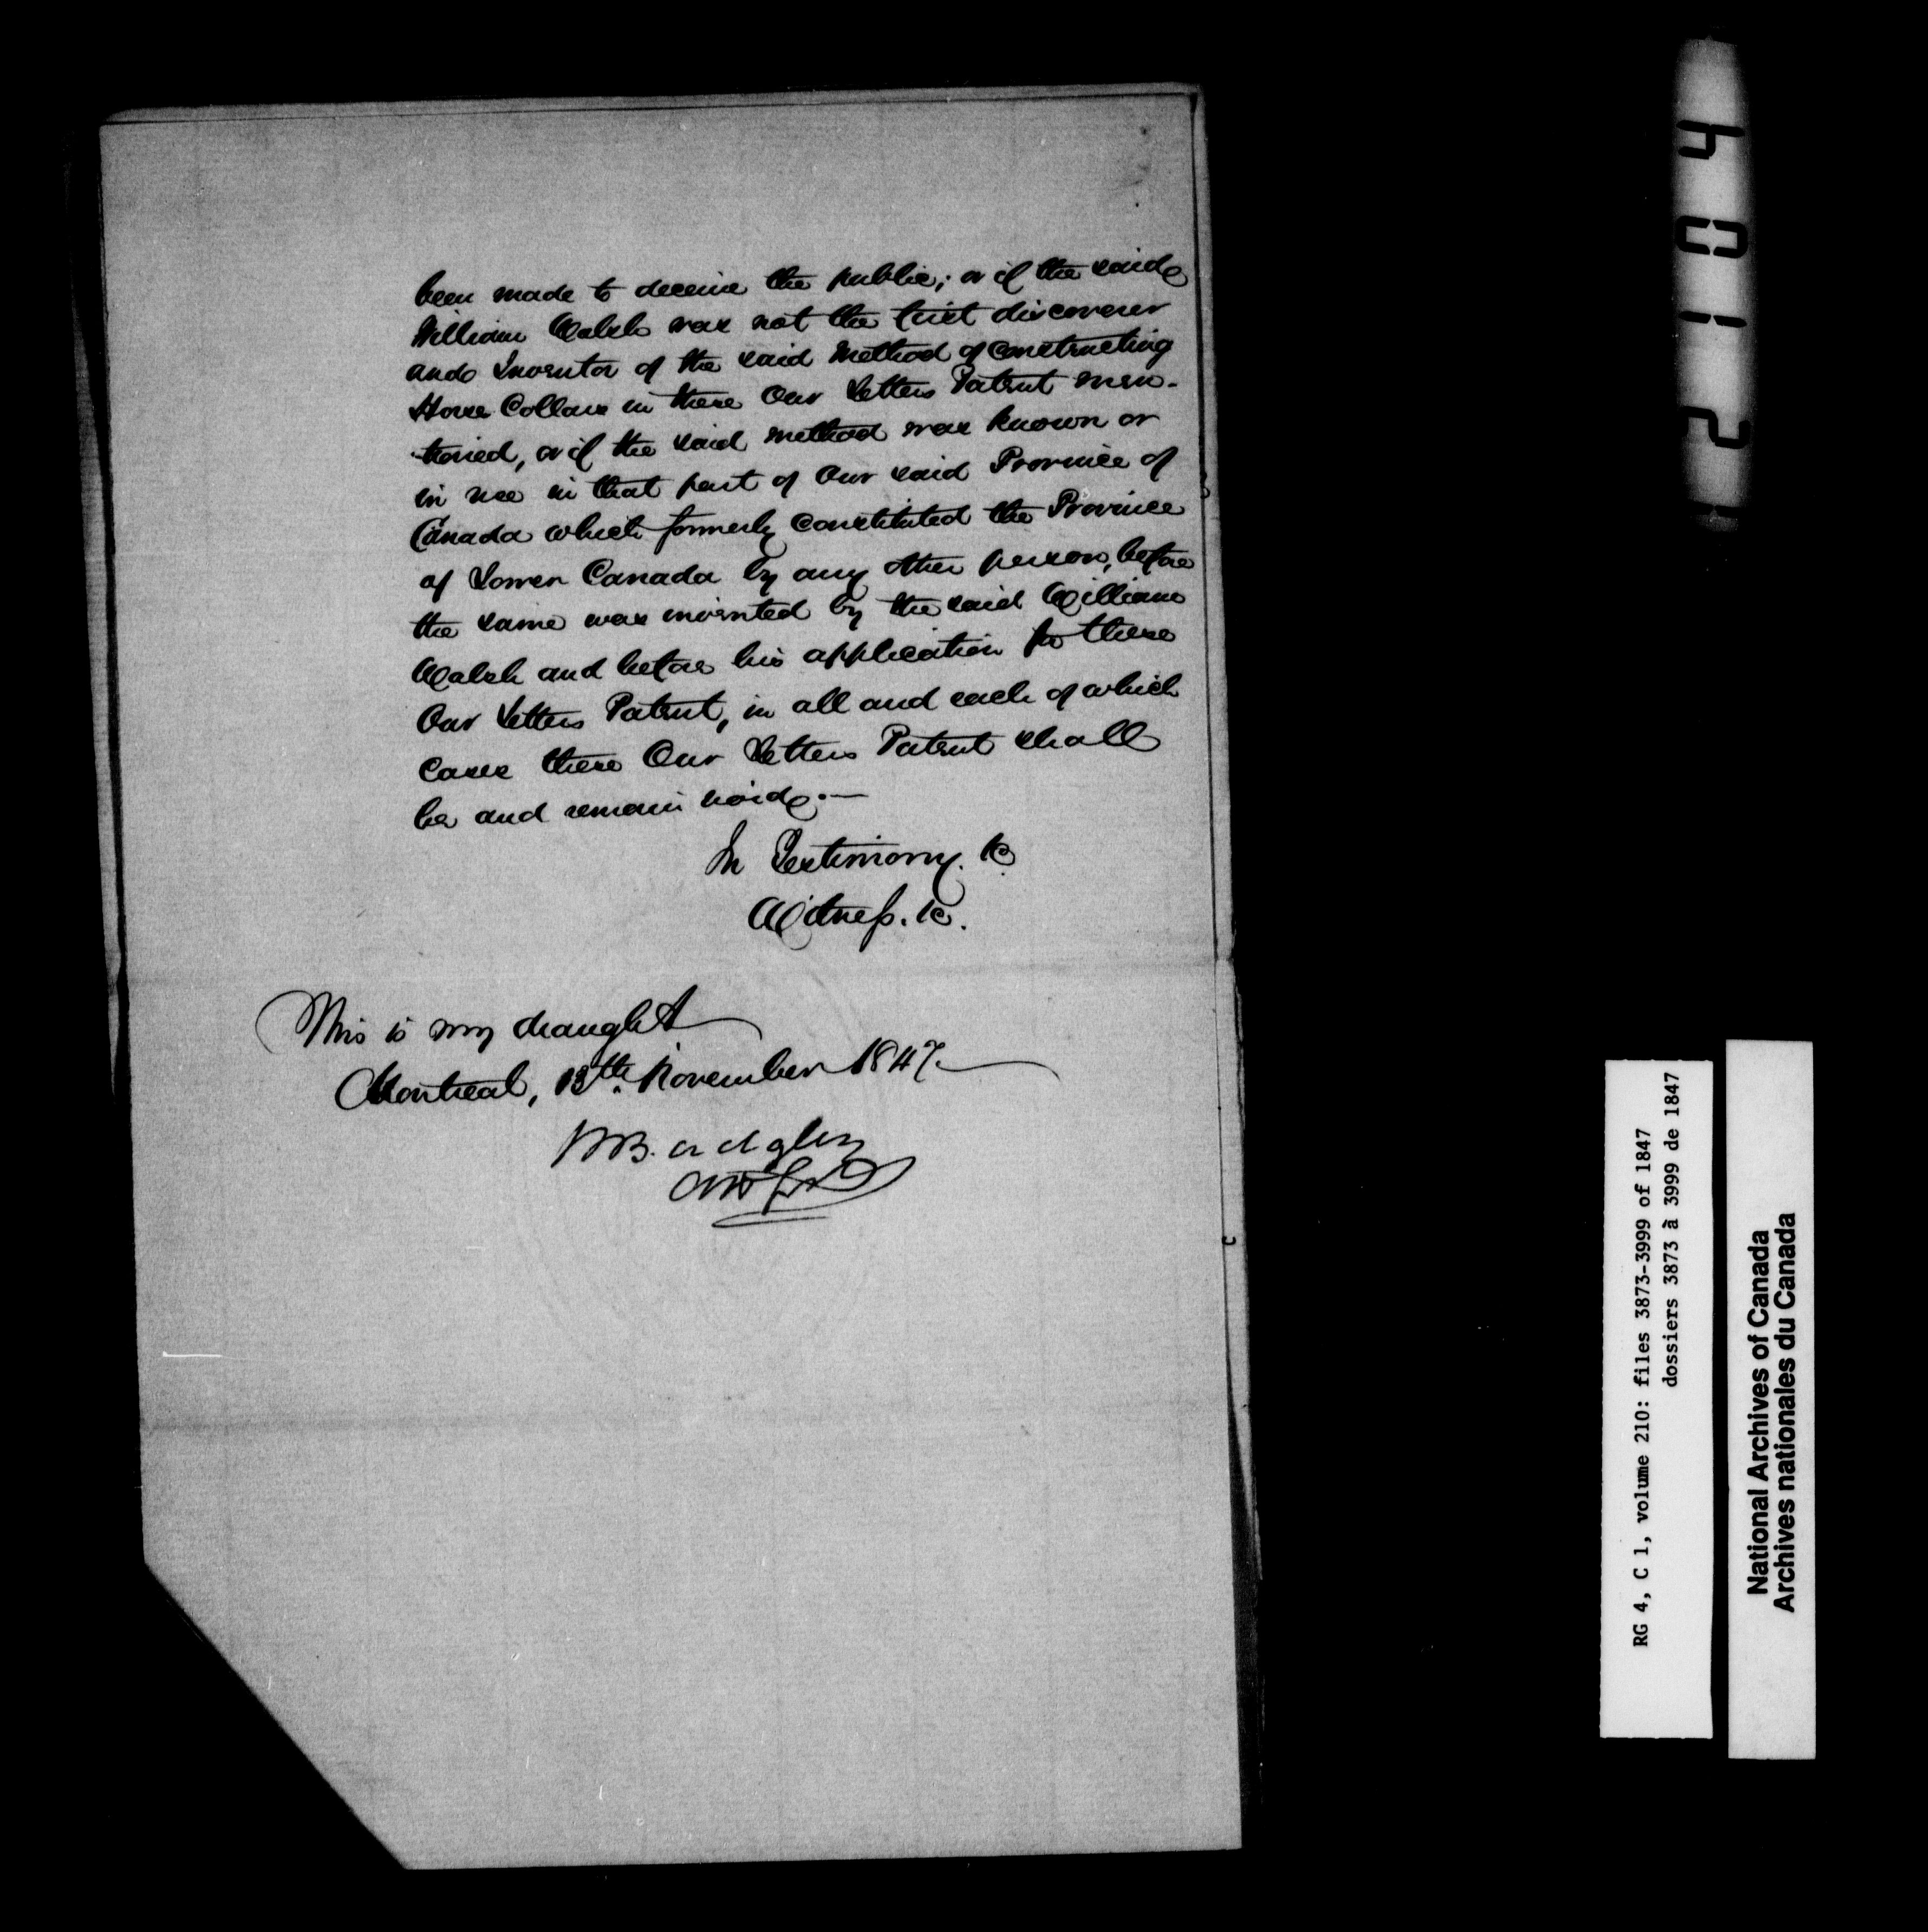 been made to deceive the public; or if the said
William Walsh was not the first discoverer
and Inventor of the said Method of constructing
Horse Collars in these Our Letters Patent men-
-tioned, or if the said method was known or
in use in that part of Our said Province of
Canada which formerly constituted the Province
of Lower Canada by any other person, before
the same was invented by the said William
Walsh and before his application for these
Our Letters Patent, in all and each of which
cases these Our Letters Patent shall
be and remain void.—
In Testimony. &c.
Witness. &c.
This is my draught
Montreal, 13th. November 1847
Wm. Badgley
4012
RG 4, C 1, volume 210: files 3873-3999 of 1847
dossiers 3873 à 3999 de 1847
National Archives of Canada
Archives nationales du Canada